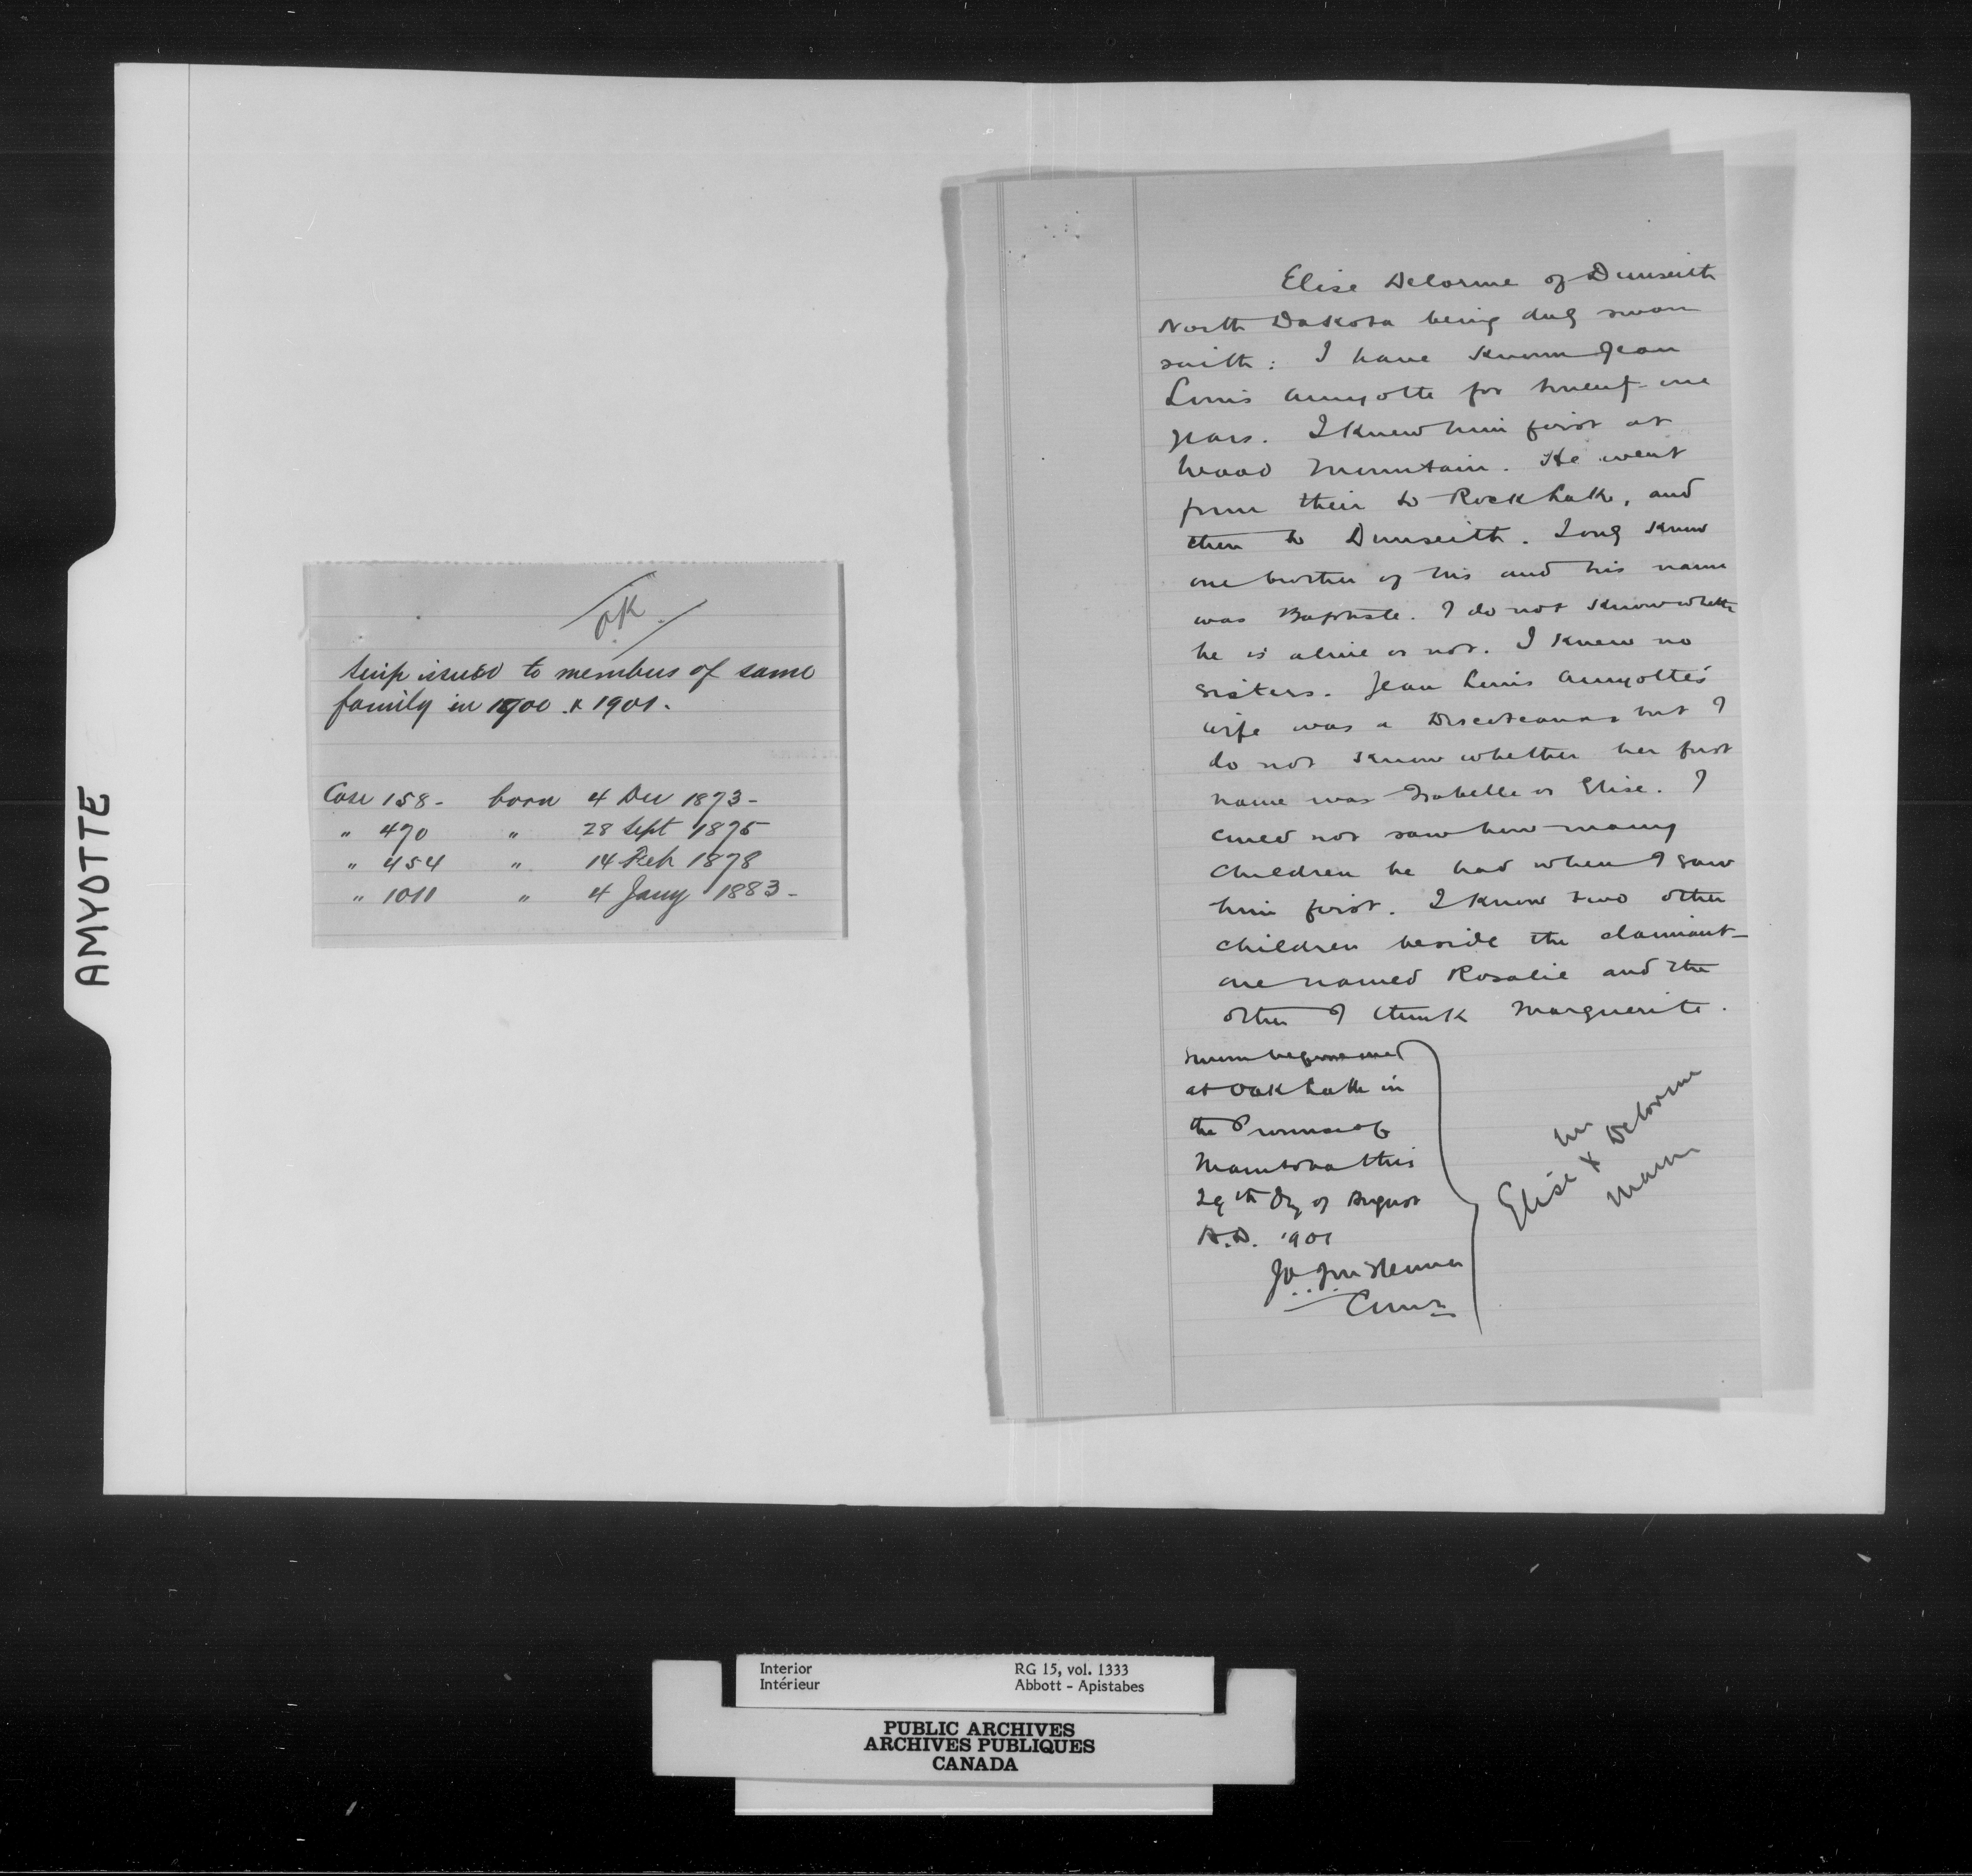 AMYOTTE
OK.
Scrip issued to members of same
family in 1900 & 1901.
Case 158 - born 4 Dec 1873 -
" 470 " 28 Sept 1875
" 454 " 14 Feb 1878
" 1011 " 4 Jany 1883 -
Elise Delorme of Dunseith
North Dakota being duly sworn
saith : I have known Jean
Louis Amyotte for twenty-one
years. I knew him first at
Wood Mountain. He went
from their to Rock Lake, and
then to Dunseith. I only knew
one brother of his and his name
was Baptiste. I do not know whether
he is alive or not. I knew no
sisters. Jean Louis Amyotte's
wife was a but I
do not know whether her first
name was Isabelle or Elise. I
could not say how many
children he had when I saw
him first. I know two other
children beside the claimant -
one named Rosalie and the
other I think Marguerite.
Sworn before me
at Oak Lake in
the Province of
Manitoba this
29th Day of August
A.D. 1901
Elise X Delorme
her
mark
Interior
Intérieur
RG 15, vol. 1333
Abbott - Apistabes
PUBLIC ARCHIVES
ARCHIVES PUBLIQUES
CANADA